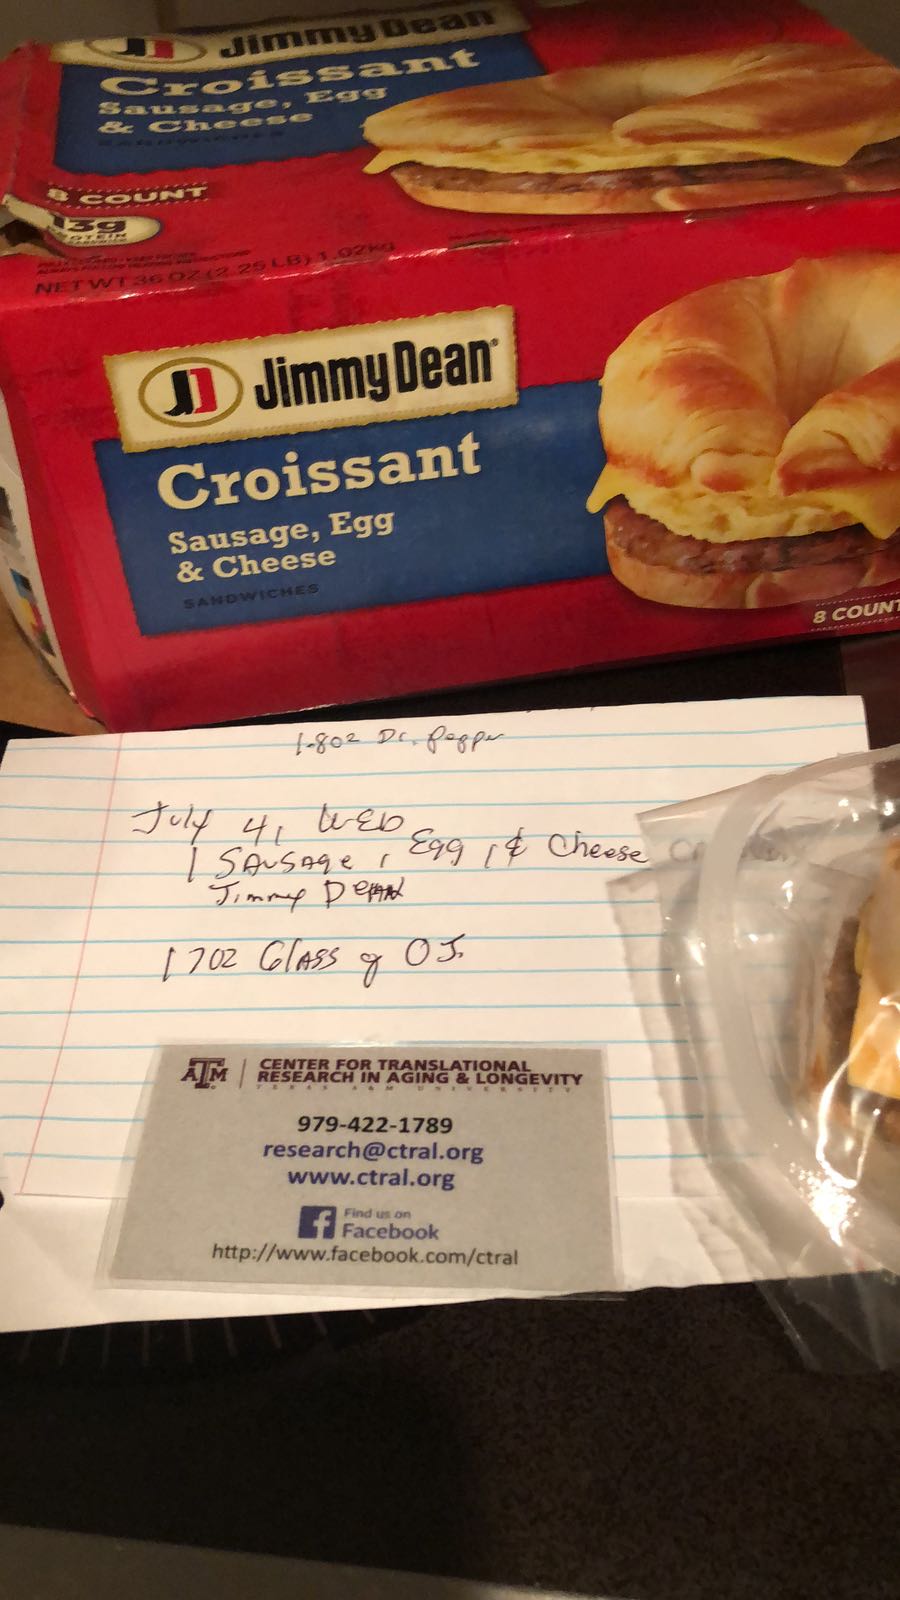 Jimmy Dean
Croissant
Sausage, Egg
& Cheese
SANDWICHES
8 COUNT
13g
PROTEIN
NET WT 36 OZ (2.25 LB) 1.02kg
Jimmy Dean®
Croissant
Sausage, Egg
& Cheese
SANDWICHES
8 COUNT
1-8oz Dr. Pepper
July 4, WED
1 SAUSAGE, Egg, & Cheese
Jimmy Dean
1 7oz Glass of OJ.
ATM | CENTER FOR TRANSLATIONAL
RESEARCH IN AGING & LONGEVITY
TEXAS A&M UNIVERSITY
979-422-1789
research@ctral.org
www.ctral.org
Find us on
Facebook
http://www.facebook.com/ctral